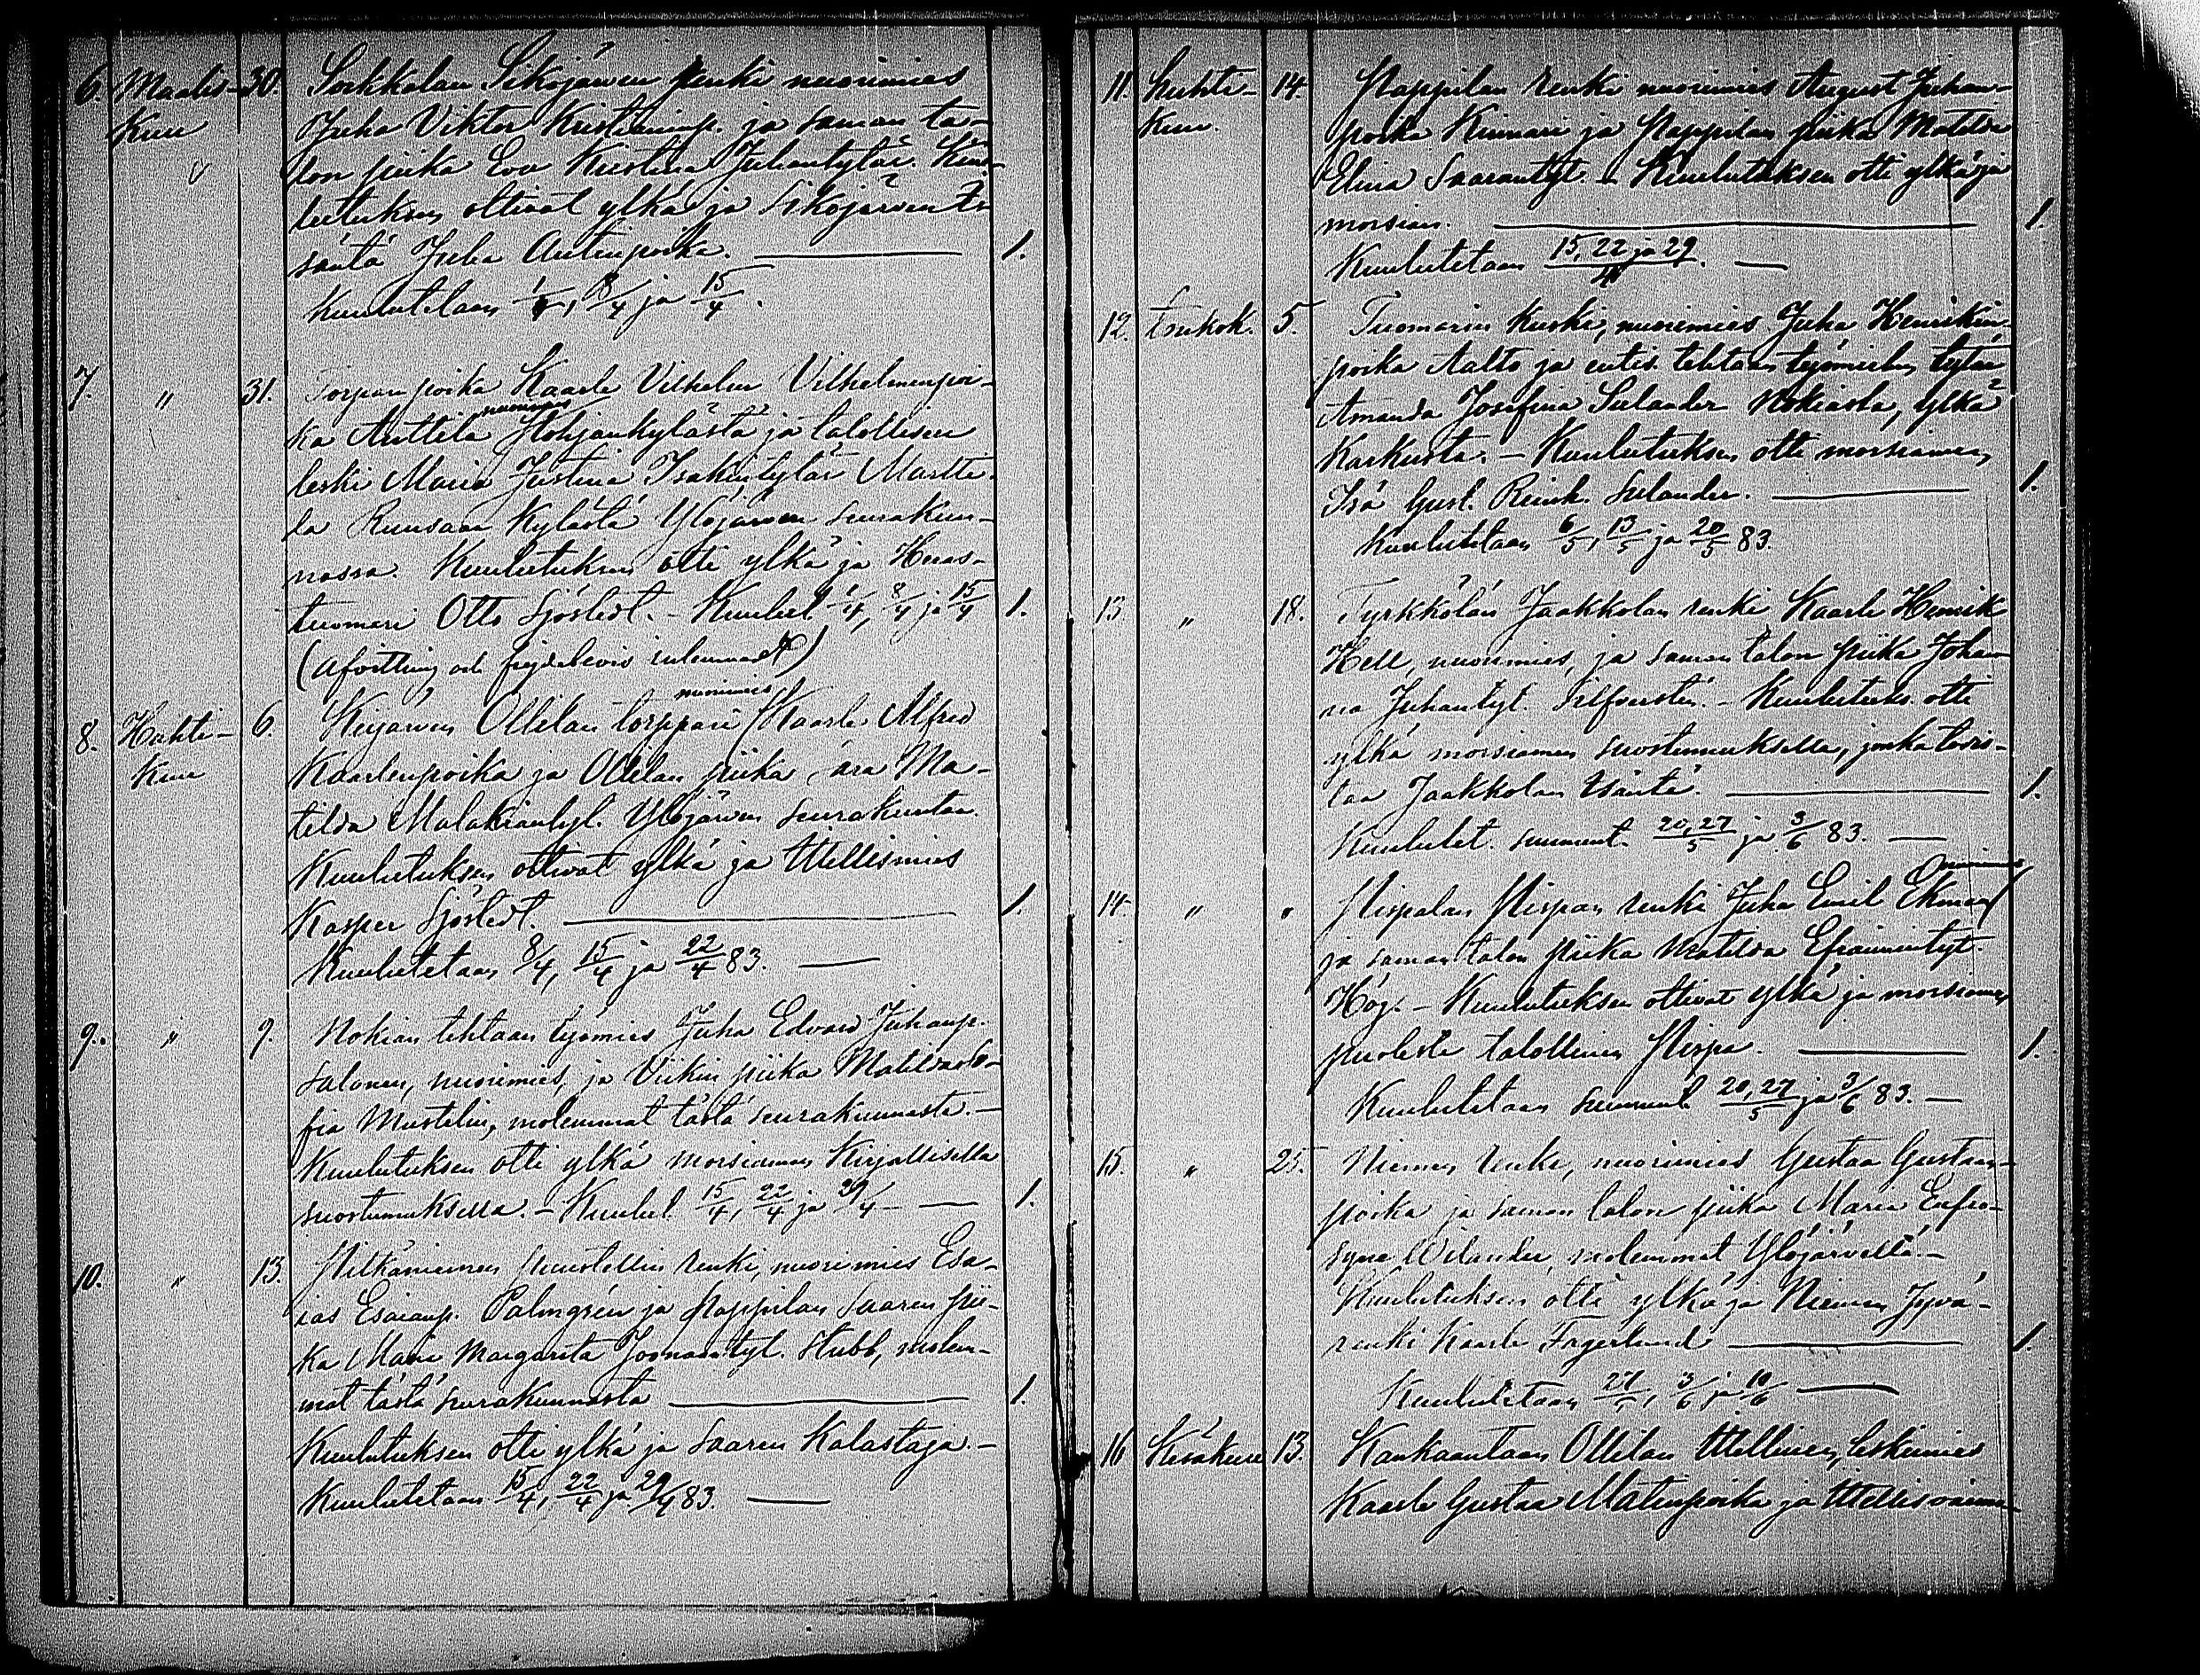 6. Maalis- 30. Sorkkolan Sikojärven renki nuorimies
Kuu Juha Viktor Kristianinp. ja saman ta-
lon piika Eva Kristina Juhantytär. Kuu-
lutuksen ottivat ylkä ja Sikojärven I-
säntä Juha Antinpoika. 1.
Kuulutetaan 1/4, 8/4 ja 15/4.
7. " 31. Torpan poika Kaarle Vilhelm Vilhelminpoi-
nuorimies
ka Anttila Pohjankylästä ja talollisen
leski Maria Justina Isakintytär Martti-
la Runsaan Kylästä Ylöjärven seurakun-
nassa. Kuulutuksen otti ylkä ja Heras-
tuomari Otto Sjöstedt. - Kuulut. 1/4, 8/4 ja 15/4 1.
(Afvittring och frejdebevis)
nuorimies
8. Huhti- 6. Keijärven Ollilan torppari Kaarle Alfred
Kuu Kaarlenpoika ja Ollilan piika Sara Ma-
tilda Malakiantyt. Ylöjärven seurakuntaa.
Kuulutuksen ottivat ylkä ja Itellismies
Kasper Sjöstedt. 1.
Kuulutetaan 8/4, 15/4 ja 22/4 83.
9. " 9. Nokian tehtaan työmies Juha Edvard Juhanp.
Salonen, nuorimies, ja Viikin piika Matilda So-
fia Mustelin, molemmat tästä seurakunnasta. -
Kuulutuksen otti ylkä morsiamen Kirjallisella
suostumuksella. - Kuulut. 15/4, 22/4 ja 29/4 - 1.
10. " 13. Pitkäniemen puustellin renki, nuorimies Esa-
ias Esaianp. Palmgrén ja Pappilan Saaren pii-
ka Maria Margareta Joonaantyt. Stubb, molem-
mat tästä seurakunnasta 1.
Kuulutuksen otti ylkä ja Saaren Kalastaja. -
Kuulutetaan 15/4, 22/4 ja 29/4 83.
11. Huhti- 14. Pappilan renki nuorimies August Juhan-
Kuu. poika Kinnari ja Pappilan piika Matilda
Elina Saarantyt. - Kuulutuksen otti ylkä ja
morsian. 1.
Kuulutetaan 15, 22 ja 29/4.
12. Toukok. 5. Tuomarin Kuski, nuorimies Juha Henrikin-
poika Aalto ja entis. tehtaan työmiehen tytär
Amanda Josefina Sulander Nokialta, ylkä
Karkusta. - Kuulutuksen otti morsiamen
Isä Gust. Reink. Sulander. 1.
Kuulutetaan 6/5, 13/5 ja 20/5 83.
13. " 18. Tyrkkölän Jaakkolan renki Kaarle Henrik
Hell, nuorimies, ja saman talon piika Johan-
na Juhantyt. Silfverstén. - Kuulutuks. otti
ylkä morsiamen suostumuksella, jonka todis-
taa Jaakkolan Isäntä. 1.
Kuulutet. sunnunt. 20, 27/5 ja 3/6 83.
nuorimies
14. " " Pispalan Pispan renki Juha Emil Ekman
ja saman talon piika Matilda Efraimintyt.
Hög. - Kuulutuksen ottivat ylkä ja morsiamen
puolesta talollinen Pispa. 1.
Kuulutetaan sunnunt. 20, 27/5 ja 3/6 83. -
15. " 25. Niemen renki, nuorimies Gustaa Gustaan-
poika ja saman talon piika Maria Eufro-
syne Wilander, molemmat Ylöjärveltä. -
Kuulutuksen otti ylkä ja Niemen Jyvä-
renki Kaarle Fagerlund 1.
Kuulutetaan 27/5, 3/6 ja 10/6
16 Kesäkuu 13. Kankaantaan Ollilan Itellinen, leskimies
Kaarle Gustaa Matinpoika ja Itellisvaimo